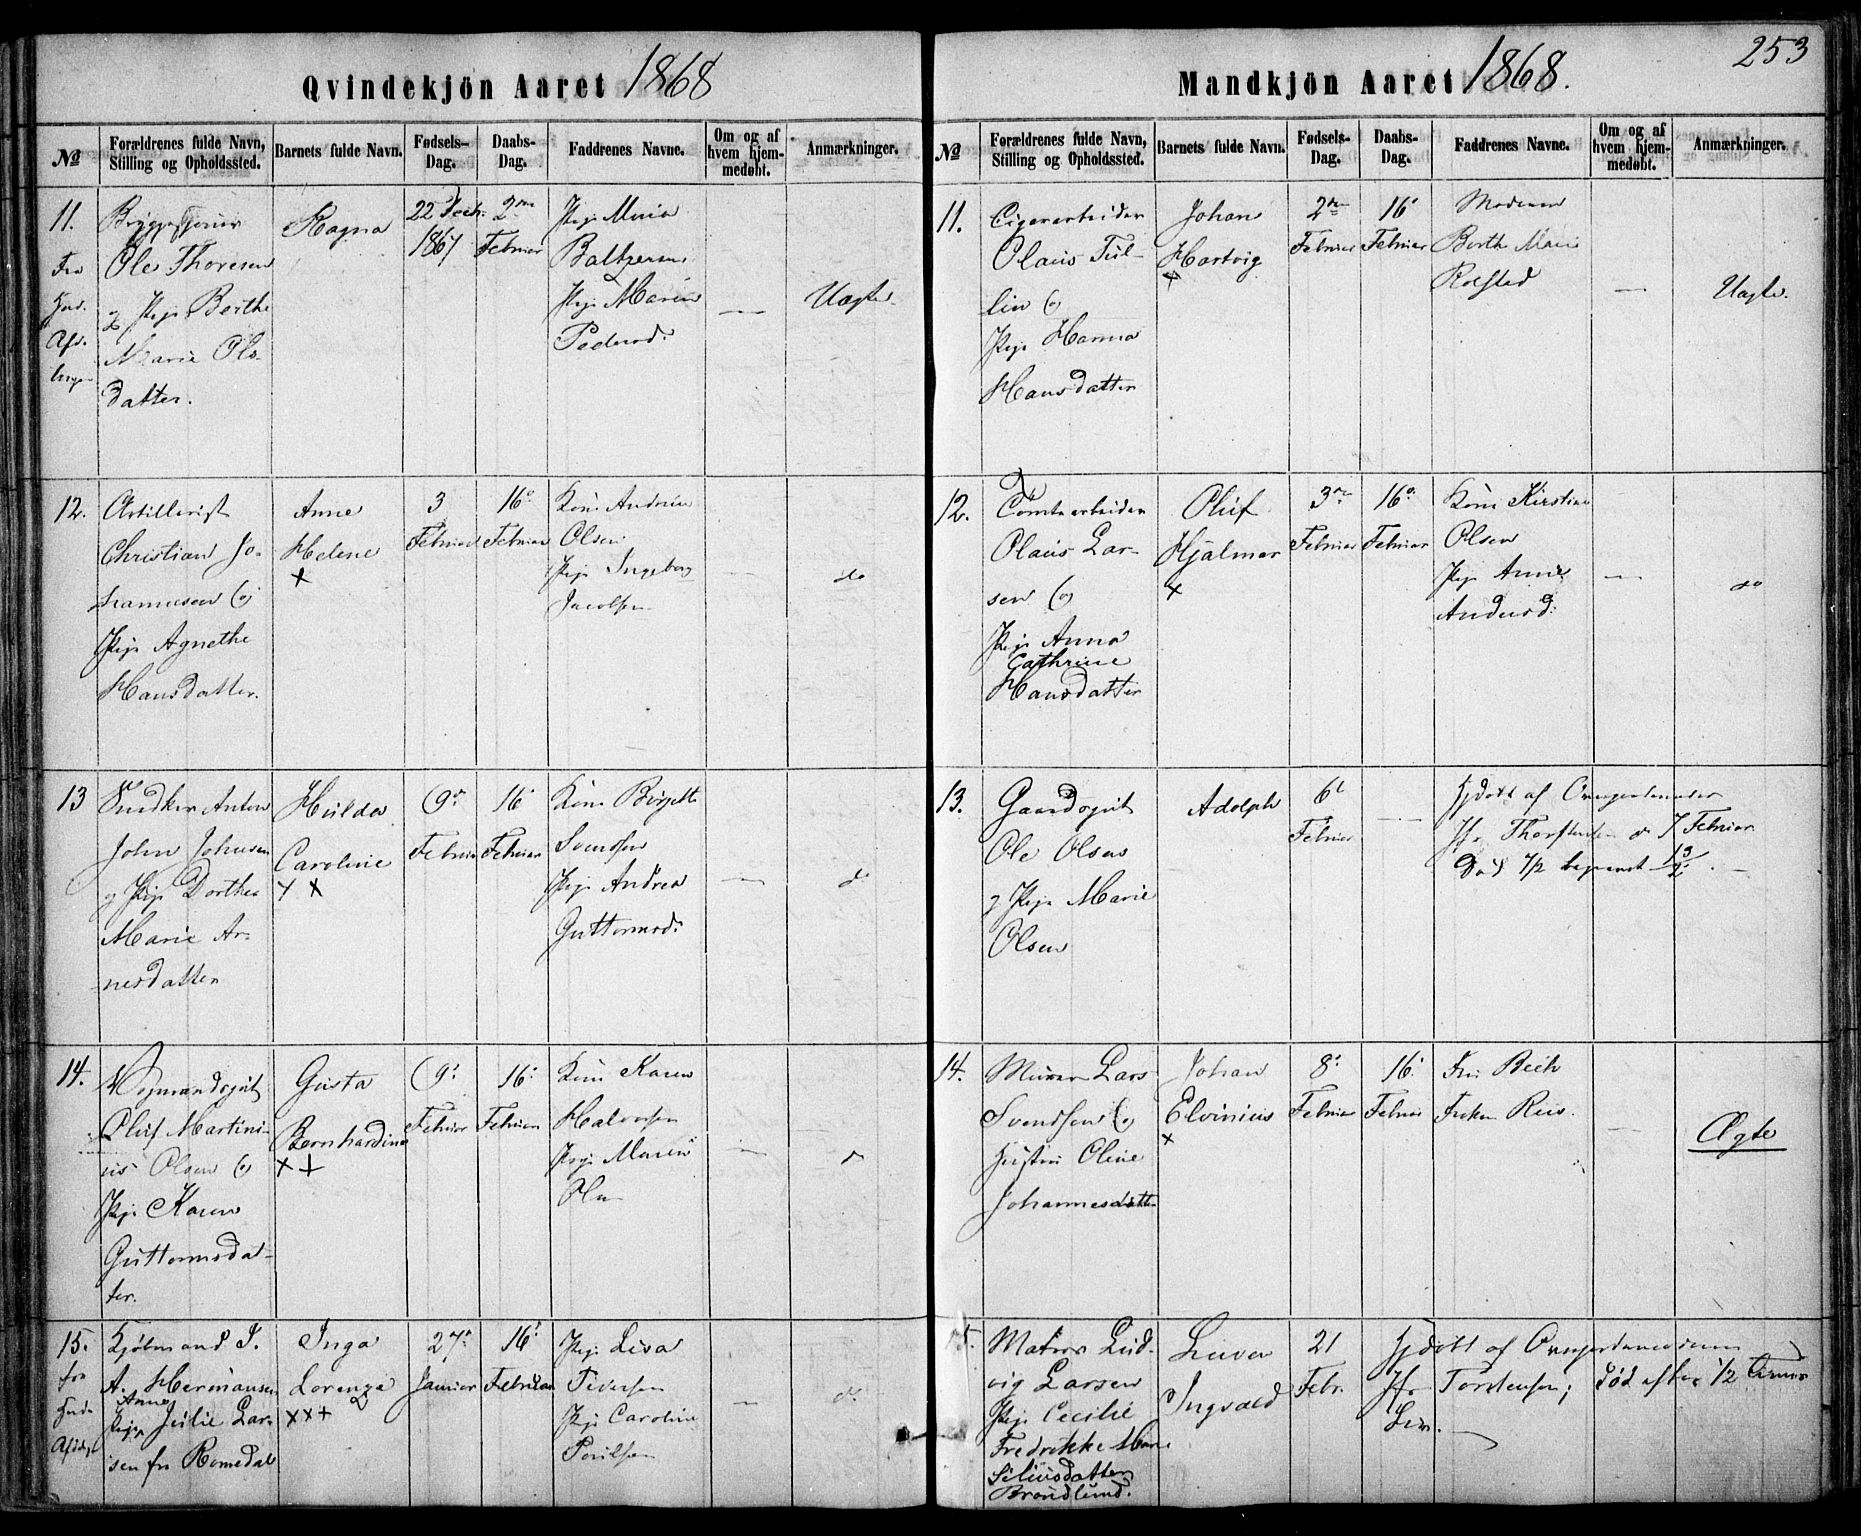 253
Qvindekjön Aaret 1868
No
Forældrenes fulde Navn, Stilling og Opholdssted.
Barnets fulde Navn.
Fødsels-Dag.
Daabs-Dag.
Faddrenes Navne.
Om og af hvem hjemmedøbt.
Anmærkninger.
11.
Fra
Ole Thoresen
Pige Berthe
Marie Ols-
datter.
Ragna
22 Decbr.
1867
2den
Februar
Pige Maria
Pige Maren
Pedersd.
—
Uægte.
12.
Artillerist
Christian Jo-
hannesen og
Pige Agnethe
Hansdatter.
Anne
Helene
×
3
Februar
16
Februar
Kone Andrine
Olsen
Pige Ingeborg
Jacobsen
—
do
13
Snedker Anton
John Johnsen
og Pige Dorthea
Marie Ar-
nesdatter
Hulda
Caroline
× ×
9
Februar
16
Februar
Kone Birgitte
Svendsen
Pige Andrea
Guttormsd.
—
do
14.
Vognmandsgut
Oluf Martini-
us Olsen og
Pige Karen
Guttormsdat-
ter.
Gusta
Bernhardine
× +
9
Februar
16
Februar
Kone Karen
Halvorsen
Pige Maren
Olsen
—
15.
fra
Kjøbmand I.
A. Hermansen
Anne
Pige Julie Lar-
sen fra Romedal
Inga
Lorenza
××+
27
Januar
16
Februar
Pige Lisa
Pedersen
Pige Caroline
Poulsen
—
do
Mandkjön Aaret 1868.
No
Forældrenes fulde Navn, Stilling og Opholdssted.
Barnets fulde Navn.
Fødsels-Dag.
Daabs-Dag.
Faddrenes Navne.
Om og af hvem hjemmedøbt.
Anmærkninger.
11.
Cigararbeider
Olaus Tul-
lin og
Pige Hanna
Hansdatter
Johan
Hartvig
×
2den
Februar
16
Februar
Moderen
Berth Marie
Rolstad
—
Uægte.
12.
Olaus Lar-
sen og
Pige Anna
Cathrine
Hansdatter
Oluf
Hjalmar
×
3die
Februar
16
Februar
Kone Kirstine
Olsen
Pige Anne
Andersd.
—
do
13.
Gaardsgut
Ole Olsen
og Pige Marie
Olsen
Adolph
6
Februar
—
Hjdøbt af
Jfr Thorstensen 7 Februar
Død 7/2 begravet 13/2.
14.
Murer Lars
Svendsen og
Hustru Oline
Johannesdatter
Johan
Elvinius
×
8
Februar
16
Februar
Fru Bech
Frøken Rus.
—
Ægte
15.
Matros Lud-
vig Larsen
Pige Cecilie
Fredrikke Marie
Siliusdatter
Brondlund.
Ingvald
21
Febr.
Hjdøbt af
Jfr Torstensen; død efter 1/2 Time